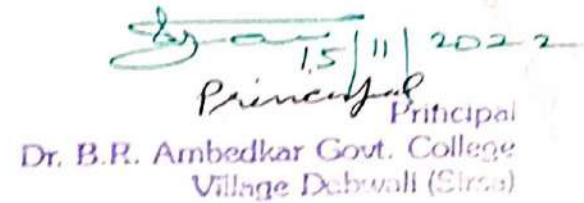 15/11/2022
Principal
Principal
Dr. B.R. Ambedkar Govt. College
Village Dabwali (Sirsa)